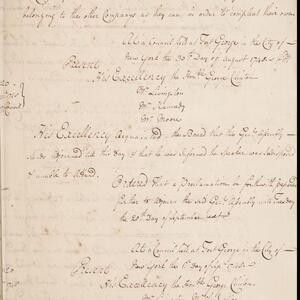 belonging to the other Companys as they can, in order to compleat their own
At a Council held at Fort George in the City of
New York the 30th Day of August 1748
Present
His Excellency the Honble George Clinton
Mr Livingston
Mr Kennedy
Mr Moore
His Excellency Acquainted the Board that the Genl Assembly
Adjourned till this Day & that he was Informed the Speaker was Indisposed
& unable to Attend.
Ordered That a Proclamation forthwith
further to the said Genl Assembly until Tuesday
the 20th Day of September next
At a Council held at Fort George in the City of
New York the Day of Sepr 1748
Present
His Excellency the Honble George Clinton